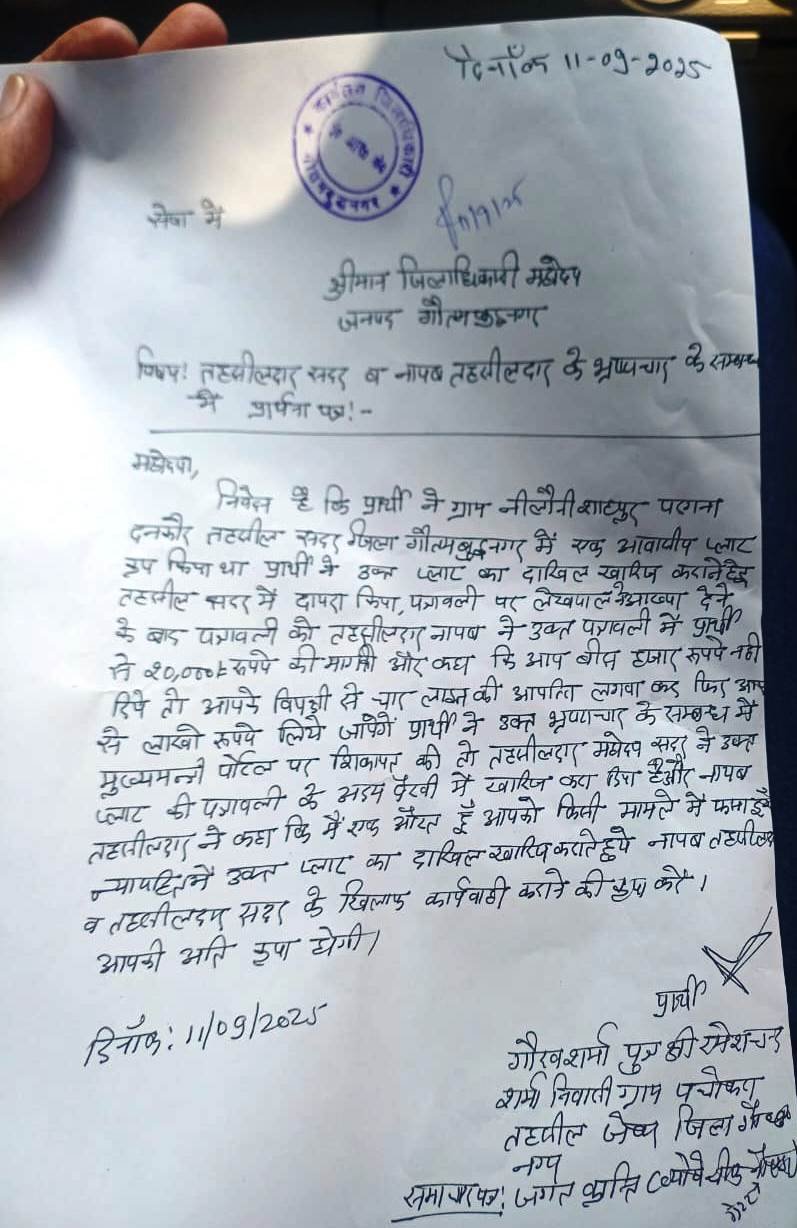 दिनाँक 11-09-2025
कार्यालय जिलाधिकारी
गौतमबुद्धनगर
सेवा में
11/9/25
श्रीमान जिलाधिकारी महोदय
जनपद गौतमबुद्धनगर
विषय! तहसीलदार सदर व नायब तहसीलदार के भ्रष्टाचार के सम्बन्ध
में प्रार्थना पत्र!-
महोदय,
निवेदन है कि प्रार्थी ने ग्राम नीलौनी शाहपुर परगना
दनकौर तहसील सदर जिला गौतमबुद्धनगर में एक आवासीय प्लाट
क्रय किया था प्रार्थी ने उक्त प्लाट का दाखिल खारिज कराने हेतु
तहसील सदर में दायरा किया, पत्रावली पर लेखपाल ने आख्या देने
के बाद पत्रावली को तहसीलदार नायब ने उक्त पत्रावली में प्रार्थी
से 20,000/- रूपये की माग की और कहा कि आप बीस हजार रूपये नही
दिये तो आपके विपक्षी से चार लाख की आपत्ति लगवा कर फिर आप
से लाखो रूपये लिये जायेगें प्रार्थी ने उक्त भ्रष्टाचार के सम्बन्ध में
मुख्यमन्त्री पोर्टल पर शिकायत की तो तहसीलदार महोदय सदर ने उक्त
प्लाट की पत्रावली के अदम पैरवी में खारिज करा दिया है और नायब
तहसीलदार ने कहा कि मैं एक औरत हूँ आपको किसी मामले में
न्यायहित में उक्त प्लाट का दाखिल खारिज कराते हुये नायब तहसीलदार
व तहसीलदार सदर के खिलाफ कार्यवाही कराने की कृपा करें।
आपकी अति कृपा होगी।
दिनाँक: 11/09/2025
प्रार्थी
गौरव शर्मा पुत्र श्री रमेशचन्द
शर्मा निवासी ग्राम पचोकरा
तहसील जेवर जिला
नगर
समाचार पत्र! जगत क्रान्ति